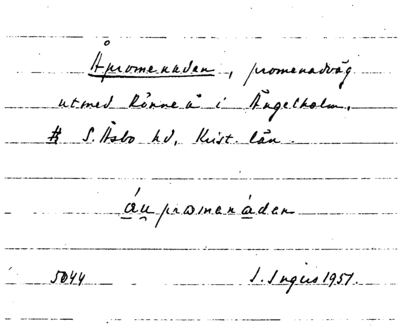 Åpromenaden, promenadväg
utmed Rönneå i Ängelholm,
S. Åsbo hd, Krist. län.
áu̯promenádan
5044 S. Ingers 1951.